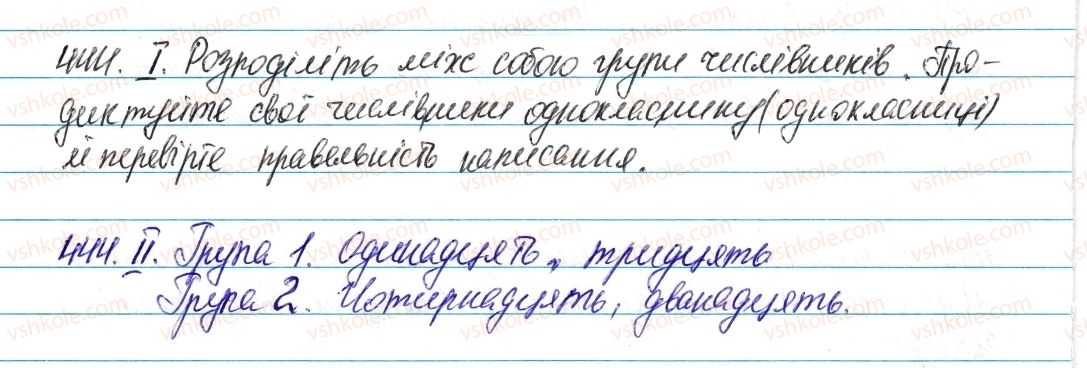 444. I. Розподіліть між собою групи числівників. Про-
диктуйте свої числівники однокласнику (однокласниці)
й перевірте правельність написання.
444. II. Група 1. Одинадцять, тридцять
Група 2. Чотирнадцять, дванадцять.
vshkole.com